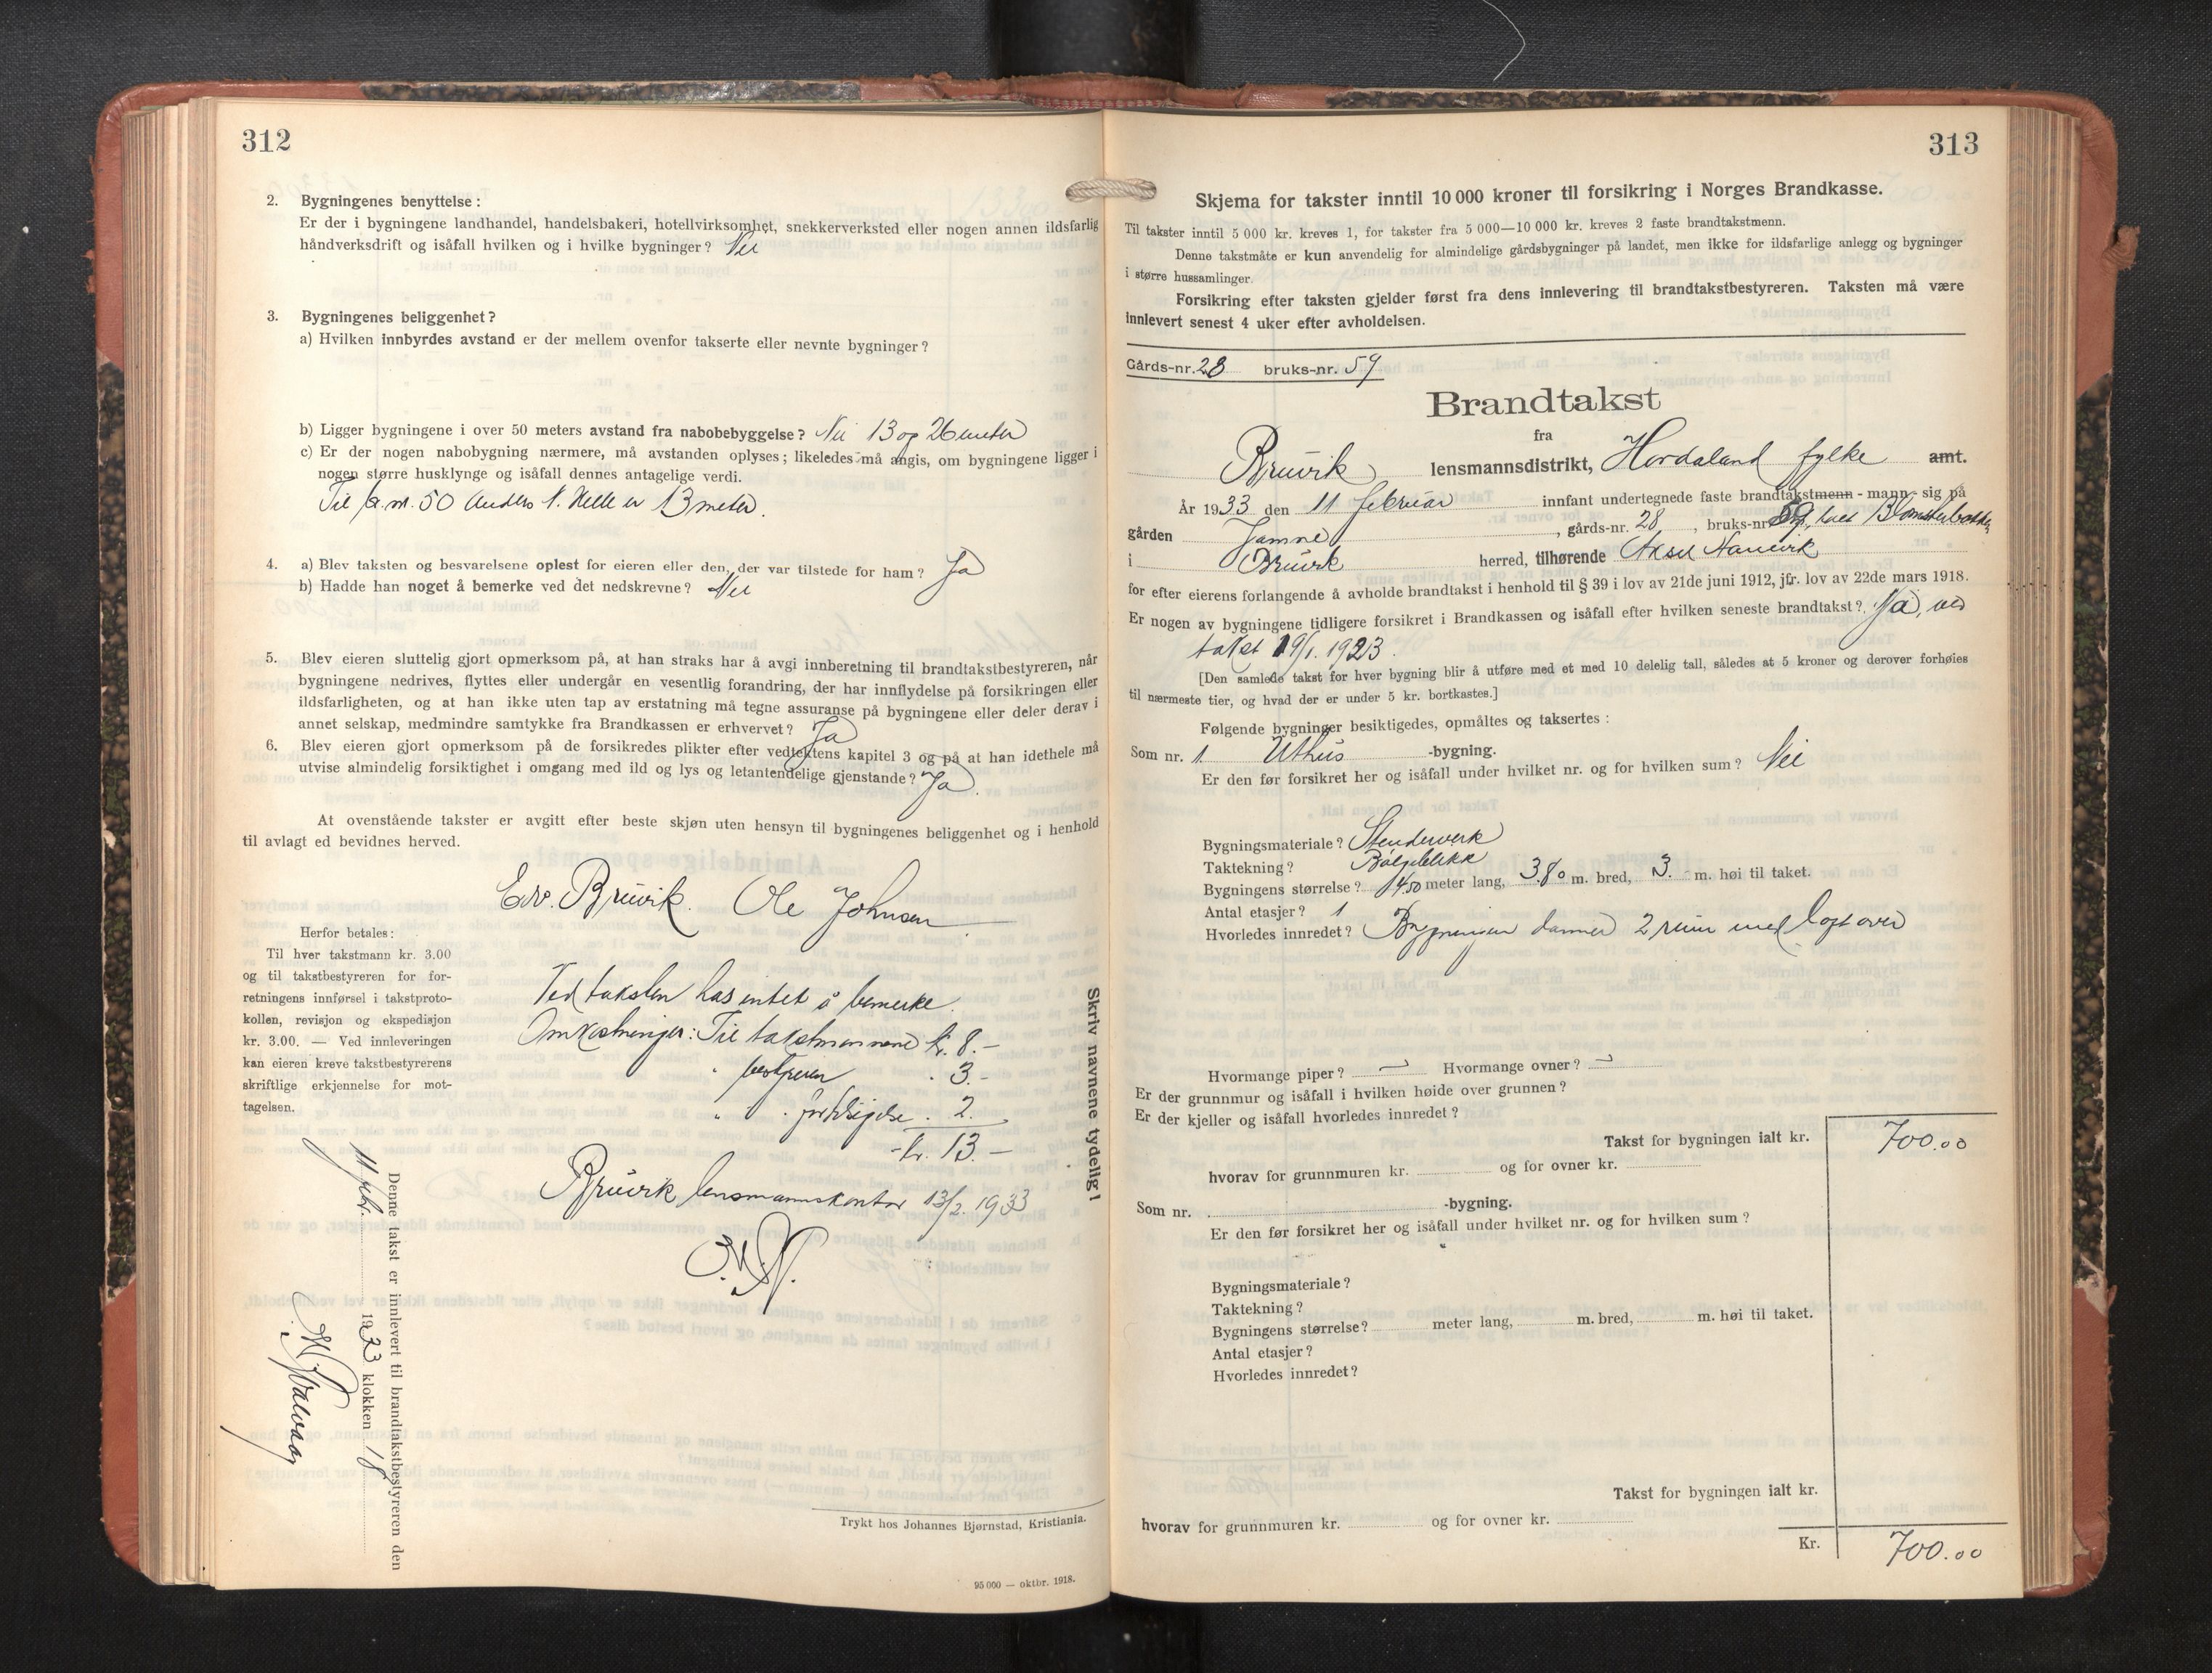 312
2. Bygningenes benyttelse :
Er der i bygningene landhandel, handelsbakeri, hotellvirksomhet, snekkerverksted eller nogen annen ildsfarlig
håndverksdrift og isåfall hvilken og i hvilke bygninger? Nei
3. Bygningenes beliggenhet?
a) Hvilken innbyrdes avstand er der mellem ovenfor takserte eller nevnte bygninger?
b) Ligger bygningene i over 50 meters avstand fra nabobebyggelse? Nei 13 og 26 meter
c) Er der nogen nabobygning nærmere, må avstanden oplyses; likeledes må angis, om bygningene ligger i
nogen større husklynge og isåfall dennes antagelige verdi.
Til br. nr. 50 Anders N. Helle er 13 meter.
4. a) Blev taksten og besvarelsene oplest for eieren eller den, der var tilstede for ham? Ja
b) Hadde han noget å bemerke ved det nedskrevne? Nei
5. Blev eieren sluttelig gjort opmerksom på, at han straks har å avgi innberetning til brandtakstbestyreren, når
bygningene nedrives, flyttes eller undergår en vesentlig forandring, der har innflydelse på forsikringen eller
ildsfarligheten, og at han ikke uten tap av erstatning må tegne assuranse på bygningene eller deler derav i
annet selskap, medmindre samtykke fra Brandkassen er erhvervet? Ja
6. Blev eieren gjort opmerksom på de forsikredes plikter efter vedtektens kapitel 3 og på at han idethele må
utvise almindelig forsiktighet i omgang med ild og lys og letantendelige gjenstande? Ja.
At ovenstående takster er avgitt efter beste skjøn uten hensyn til bygningenes beliggenhet og i henhold
til avlagt ed bevidnes herved.
Edv. Bruvik. Ole Johnsen.
Herfor betales:
Til hver takstmann kr. 3.00
og til takstbestyreren for for-
retningens innførsel i takstproto-
kollen, revisjon og ekspedisjon
kr. 3.00. — Ved innleveringen
kan eieren kreve takstbestyrerens
skriftlige erkjennelse for mot-
tagelsen.
Ved taksten has intet å bemerke.
Omkostninger: Til takstmennene kr. 8.-
" bestyreren . 3.-
" . 2.
kr. 13.-
Bruvik lensmannskontor 13/2. 1933
Skriv navnene tydelig!
Denne takst er innlevert til brandtakstbestyreren den
11 febr. 1933 klokken 18
Trykt hos Johannes Bjørnstad, Kristiania.
95 000 — oktbr. 1918.
313
Skjema for takster inntil 10 000 kroner til forsikring i Norges Brandkasse.
Til takster inntil 5 000 kr. kreves 1, for takster fra 5 000—10 000 kr. kreves 2 faste brandtakstmenn.
Denne takstmåte er kun anvendelig for almindelige gårdsbygninger på landet, men ikke for ildsfarlige anlegg og bygninger
i større hussamlinger.
Forsikring efter taksten gjelder først fra dens innlevering til brandtakstbestyreren. Taksten må være
innlevert senest 4 uker efter avholdelsen.
Gårds-nr. 28 bruks-nr. 59
Brandtakst
fra
Bruvik lensmannsdistrikt, Hordaland fylke amt.
År 1933 den 11 februar innfant undertegnede faste brandtakstmenn - mann - sig på
gården Jamne, gårds-nr. 28, bruks-nr. 59,
i Bruvik herred, tilhørende Aksel
for efter eierens forlangende å avholde brandtakst i henhold til § 39 i lov av 21de juni 1912, jfr. lov av 22de mars 1918.
Er nogen av bygningene tidligere forsikret i Brandkassen og isåfall efter hvilken seneste brandtakst? Ja, ved
takst 19/1. 1923.
[Den samlede takst for hver bygning blir å utføre med et med 10 delelig tall, således at 5 kroner og derover forhøies
til nærmeste tier, og hvad der er under 5 kr. bortkastes.]
Følgende bygninger besiktigedes, opmåltes og taksertes :
Som nr. 1. Uthus -bygning.
Er den før forsikret her og isåfall under hvilket nr. og for hvilken sum? Nei
Bygningsmateriale? Stenderverk
Taktekning? Bølgeblikk
Bygningens størrelse? 14.50 meter lang, 3.80 m. bred, 3. m. høi til taket.
Antal etasjer? 1
Hvorledes innredet? Bygningen danner 2 rum med loft over
Hvormange piper? — Hvormange ovner? —
Er der grunnmur og isåfall i hvilken høide over grunnen?
Er der kjeller og isåfall hvorledes innredet?
Takst for bygningen ialt kr. 700.00
hvorav for grunnmuren kr. og for ovner kr.
Som nr. -bygning.
Er den før forsikret her og isåfall under hvilket nr. og for hvilken sum?
Bygningsmateriale?
Taktekning?
Bygningens størrelse? meter lang, m. bred, m. høi til taket.
Antal etasjer?
Hvorledes innredet?
Takst for bygningen ialt kr.
hvorav for grunnmuren kr. og for ovner kr.
Kr. 700.00